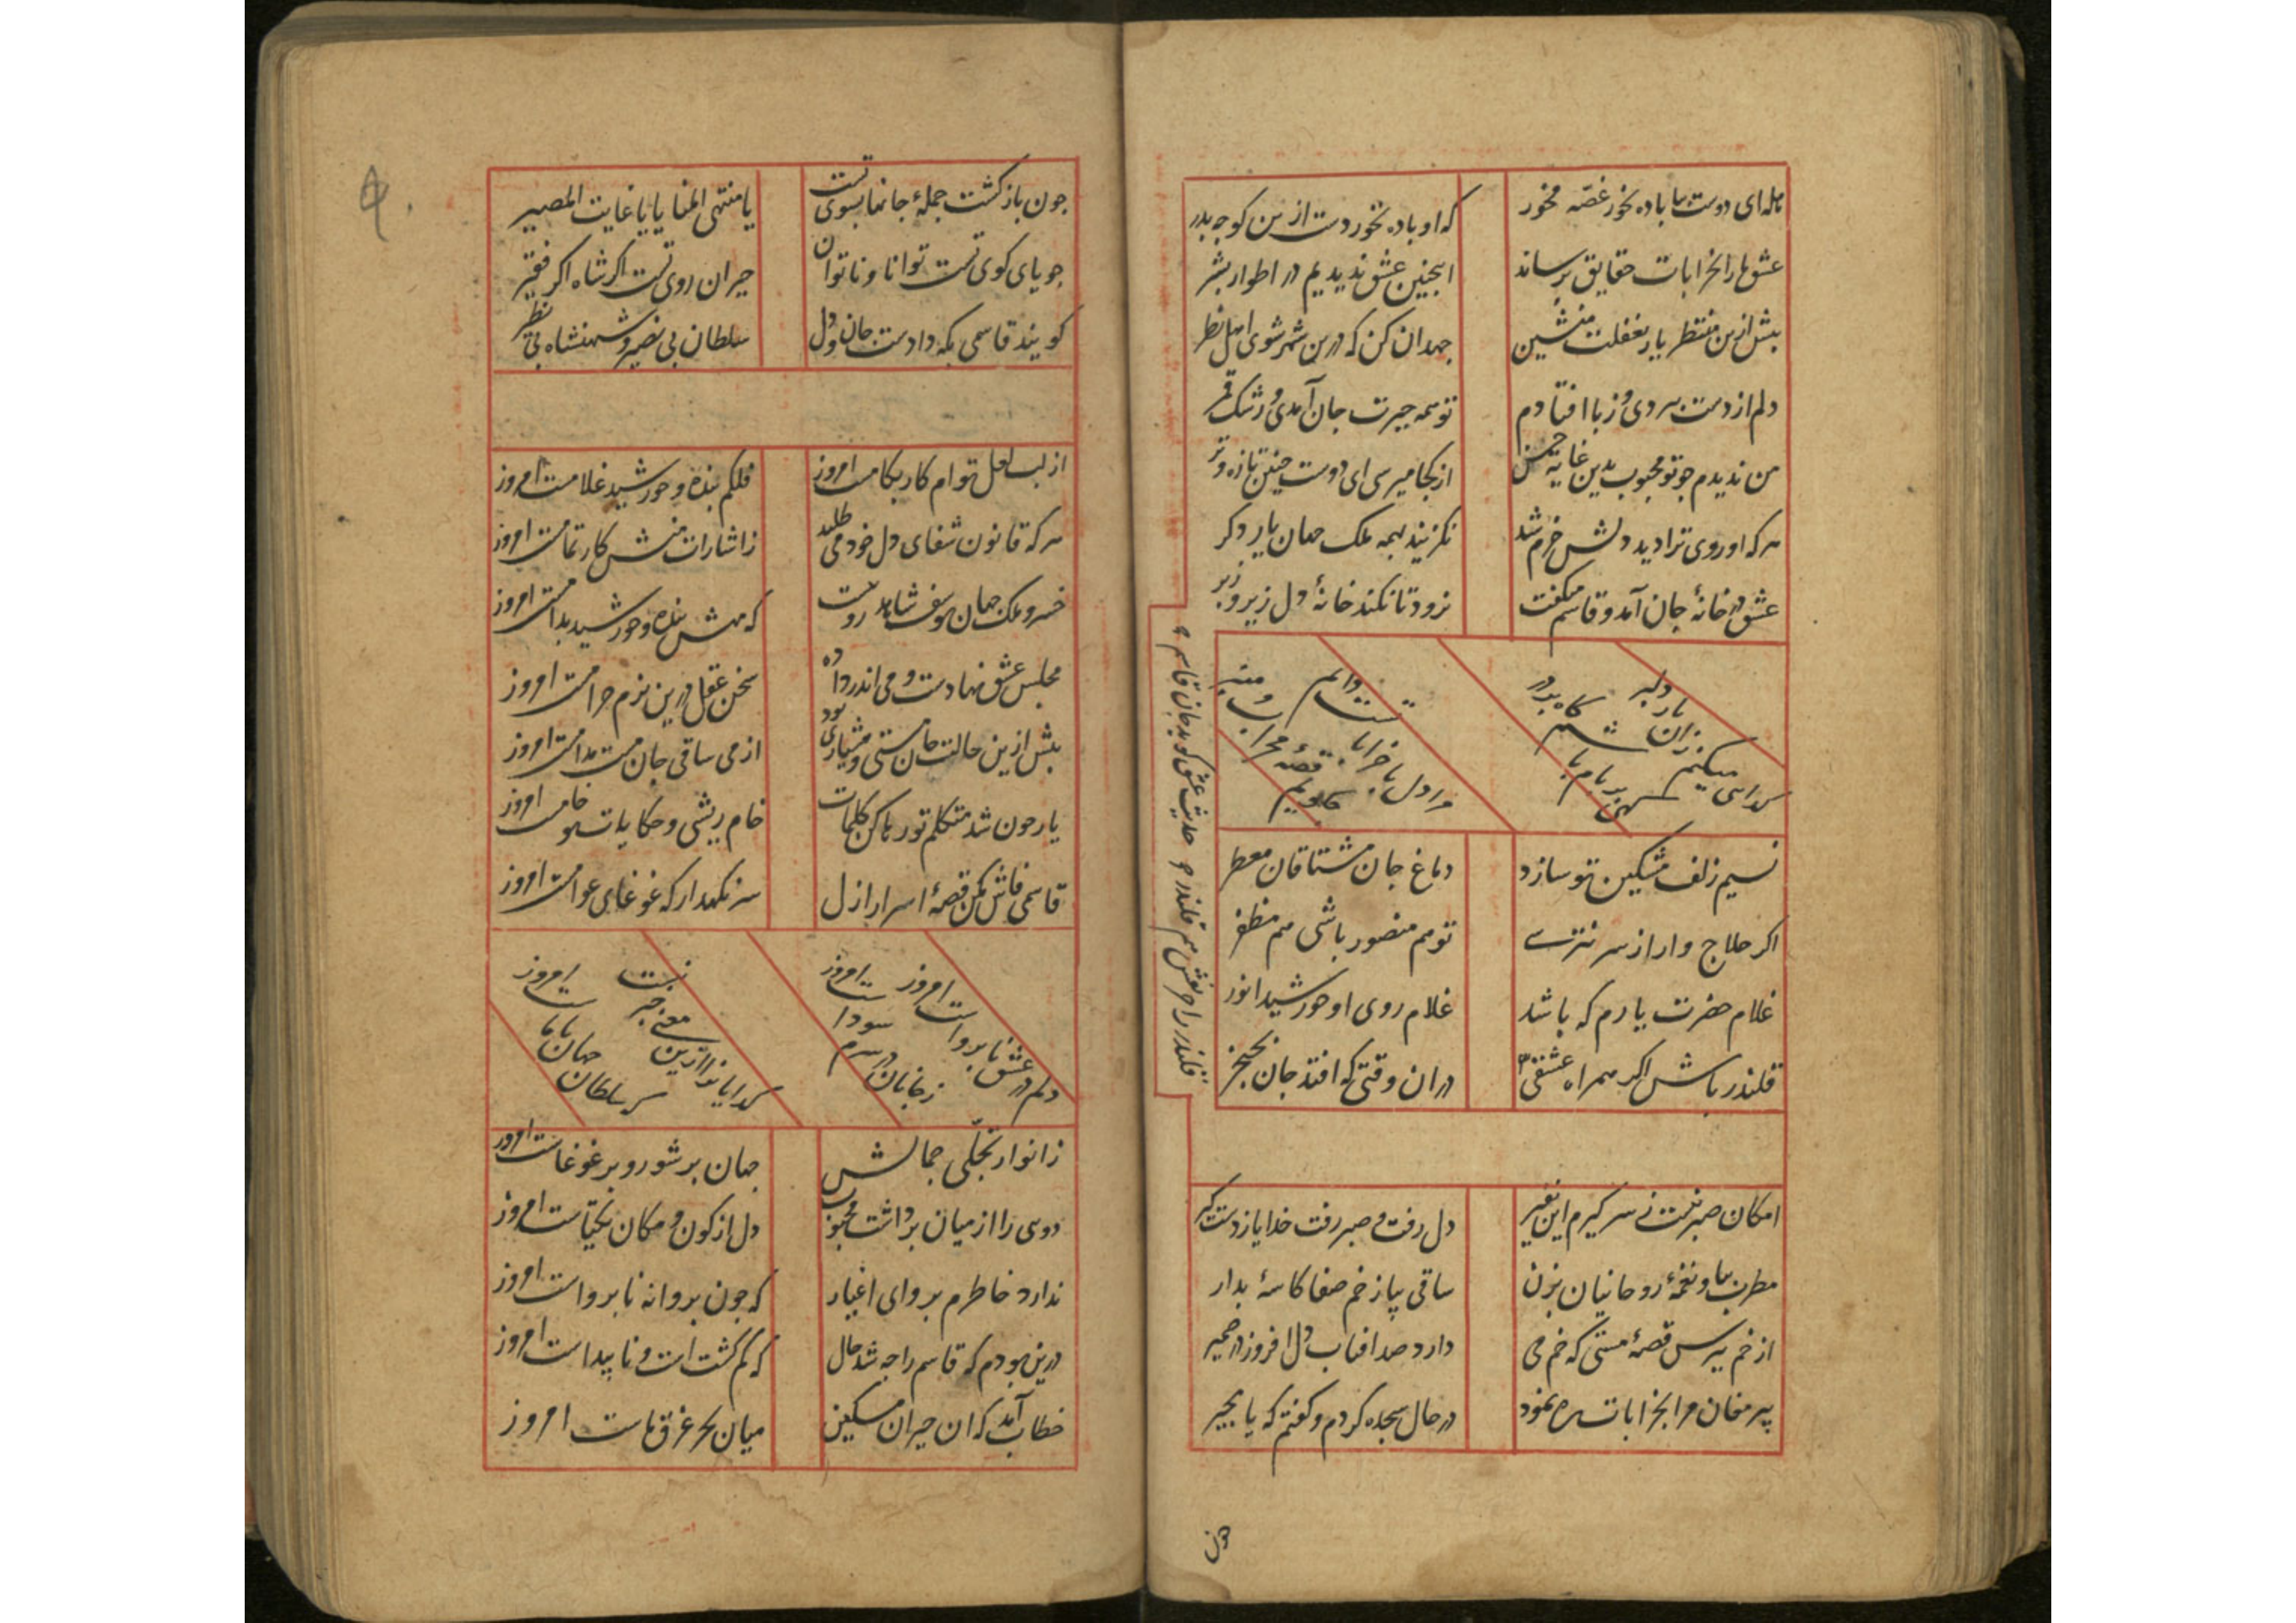 هله ای دوست بیا باده بخور غصه مخور
که او باده نخورد دست ازین کوچه بدر
عشق ما را بخرابات حقایق برساند
اینچنین عشق ندیدیم در اطوار بشر
بیش ازین منتظر یار بغفلت منشین
جهد ان کن که درین شهر شوی اهل نظر
دلم از دست سر دی و ز با افتادم
تو همه حیرت جان آمدی و رشک قمر
من ندیدم جو تو محبوب بدین غایه حسن
از کجا میرسی ای دوست چنین تازه و تر
هر که او روی ترا دید دلش خرم شد
نگزیند بهمه ملک جهان یار دگر
عشق در خانهٔ جان آمد و قاسم میگفت
نرود تا نکند خانهٔ دل زیر و زبر
گدایی میکنم زان یار دلبر
کهی بر بام باشم گاه بر در
مرا دل با خراباتست دایم
قصهٔ محراب و منبر
نسیم زلف مشکین تو سازد
دماغ جان مشتاقان معطر
اگر حلاج وار از سر نترسی
تو هم منصور باشی هم مظفر
غلام حضرت یارم که باشد
غلام روی او خورشید انور
قلندر باش اگر همراه عشقی
در ان وقتی که افتد جان بخنجر
حدیث عشق گوید جان قاسم
قلندر را خوش هم قلندر
امکان صبر نیست ز سر گیرم این نفیر
دل رفت و صبر رفت خدایا ز دست گیر
مطرب بیا و نغمهٔ روحانیان بزن
ساقی بیا ز خم صفا کاسهٔ بدار
از خم بپرس قصهٔ مستی که خم می
دارد صد افتاب دل افروز در ضمیر
پیر مغان مرا بخرابات ره نمود
در حال سجده کردم و گفتم که یا مجیر
جون
جون بازگشت جملهٔ جانها بسوی تست
یا منتهی المنا یا یا غایت المصیر
جویای کوی تست توانا و ناتوان
حیران روی تست اگر شاه اگر فقیر
گویند قاسمی بکه دادست جان و دل
سلطان بی نصیر و شهنشاه بی نظیر
از لب لعل توام کار بکامست امروز
فلکم بنده و خورشید غلامست امروز
هر که قانون شفای دل خود می طلبد
ز اشارات منش کار تمامست امروز
خسرو ملک جهان یوسف شاهد روست
که مهش بنده و خورشید بدامست امروز
مجلس عشق نهادست و می اندر داده
سخن عقل درین بزم حرامست امروز
بیش ازین حالت جان مستی و هشیاری بود
از می ساقی جان مست مدامست امروز
یار جون شد متکلم تو رها کن کلمات
خام ریشی و حکایات تو خامست امروز
قاسمی فاش مکن قصهٔ اسرار ازل
سر نگهدار که غوغای عوامست امروز
دلم در عشق نابرواست امروز
ز جانان در سرم سوداست امروز
گدایانرا ازین معنی خبر نیست
که سلطان جهان باماست امروز
ز انوار تجلی جمالش
جهان بر شور و بر غوغاست امروز
دوی را از میان برداشت محبوب
دل از کون و مکان یکتاست امروز
ندارد خاطرم بروای اغیار
که جون بروانه نابرواست امروز
درین بودم که قاسم را جه شد حال
که گم گشت است و ناپیداست امروز
خطاب آمد که ان حیران مسکین
میان بحر غرق ماست امروز